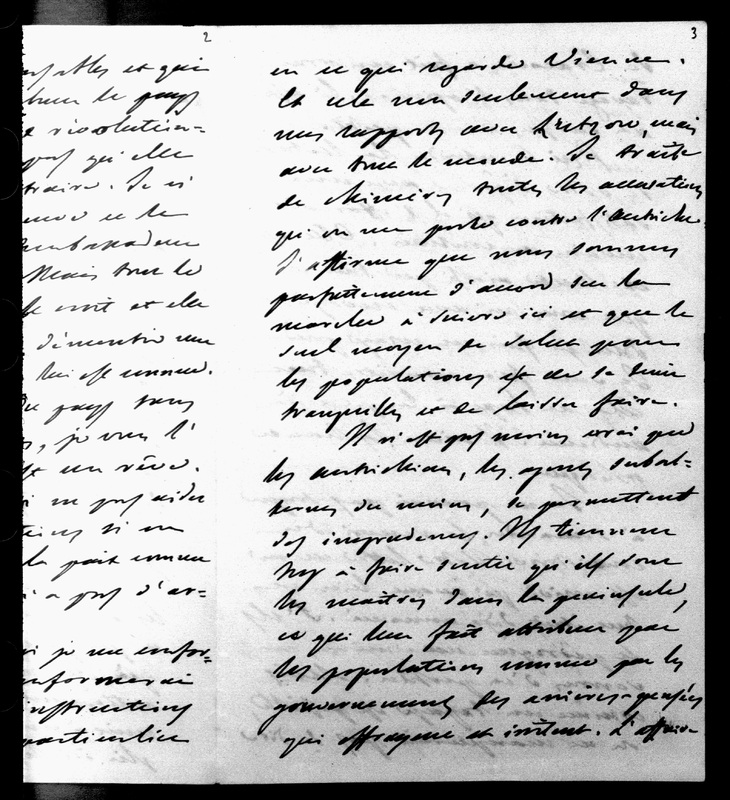 2
et qui
le pays
révolution=
qui elle
traire. Je
ce le
ambassadeur
Mais tout le
le croit et elle
démentir une
lui est connue.
du pays sans
, je vous l'
est un rêve.
pas aider
si on
la paix comme
a pas d'ar=
je me confor=
informerai
instructions
particulier
3
en ce qui regarde Vienne.
Et cela non seulement dans
mes rapports avec Lützow, mais
avec tout le monde. Je traite
de chimères toutes les accusations
qu'on me porte contre l'Autriche.
J'affirme que nous sommes
parfaitement d'accord sur la
marche à suivre ici et que le
seul moyen de salut pour
les populations est de se tenir
tranquilles et de laisser faire.
Il n'est pas moins vrai que
les autrichiens, les agents subal=
ternes du moins, se permettent
des imprudences. Ils tiennent
trop à faire sentir qu'ils sont
les maîtres dans la péninsule,
ce qui leur fait attribuer par
les populations comme par les
gouvernements des arrières-pensées
qui effrayent et irritent. L'affaire